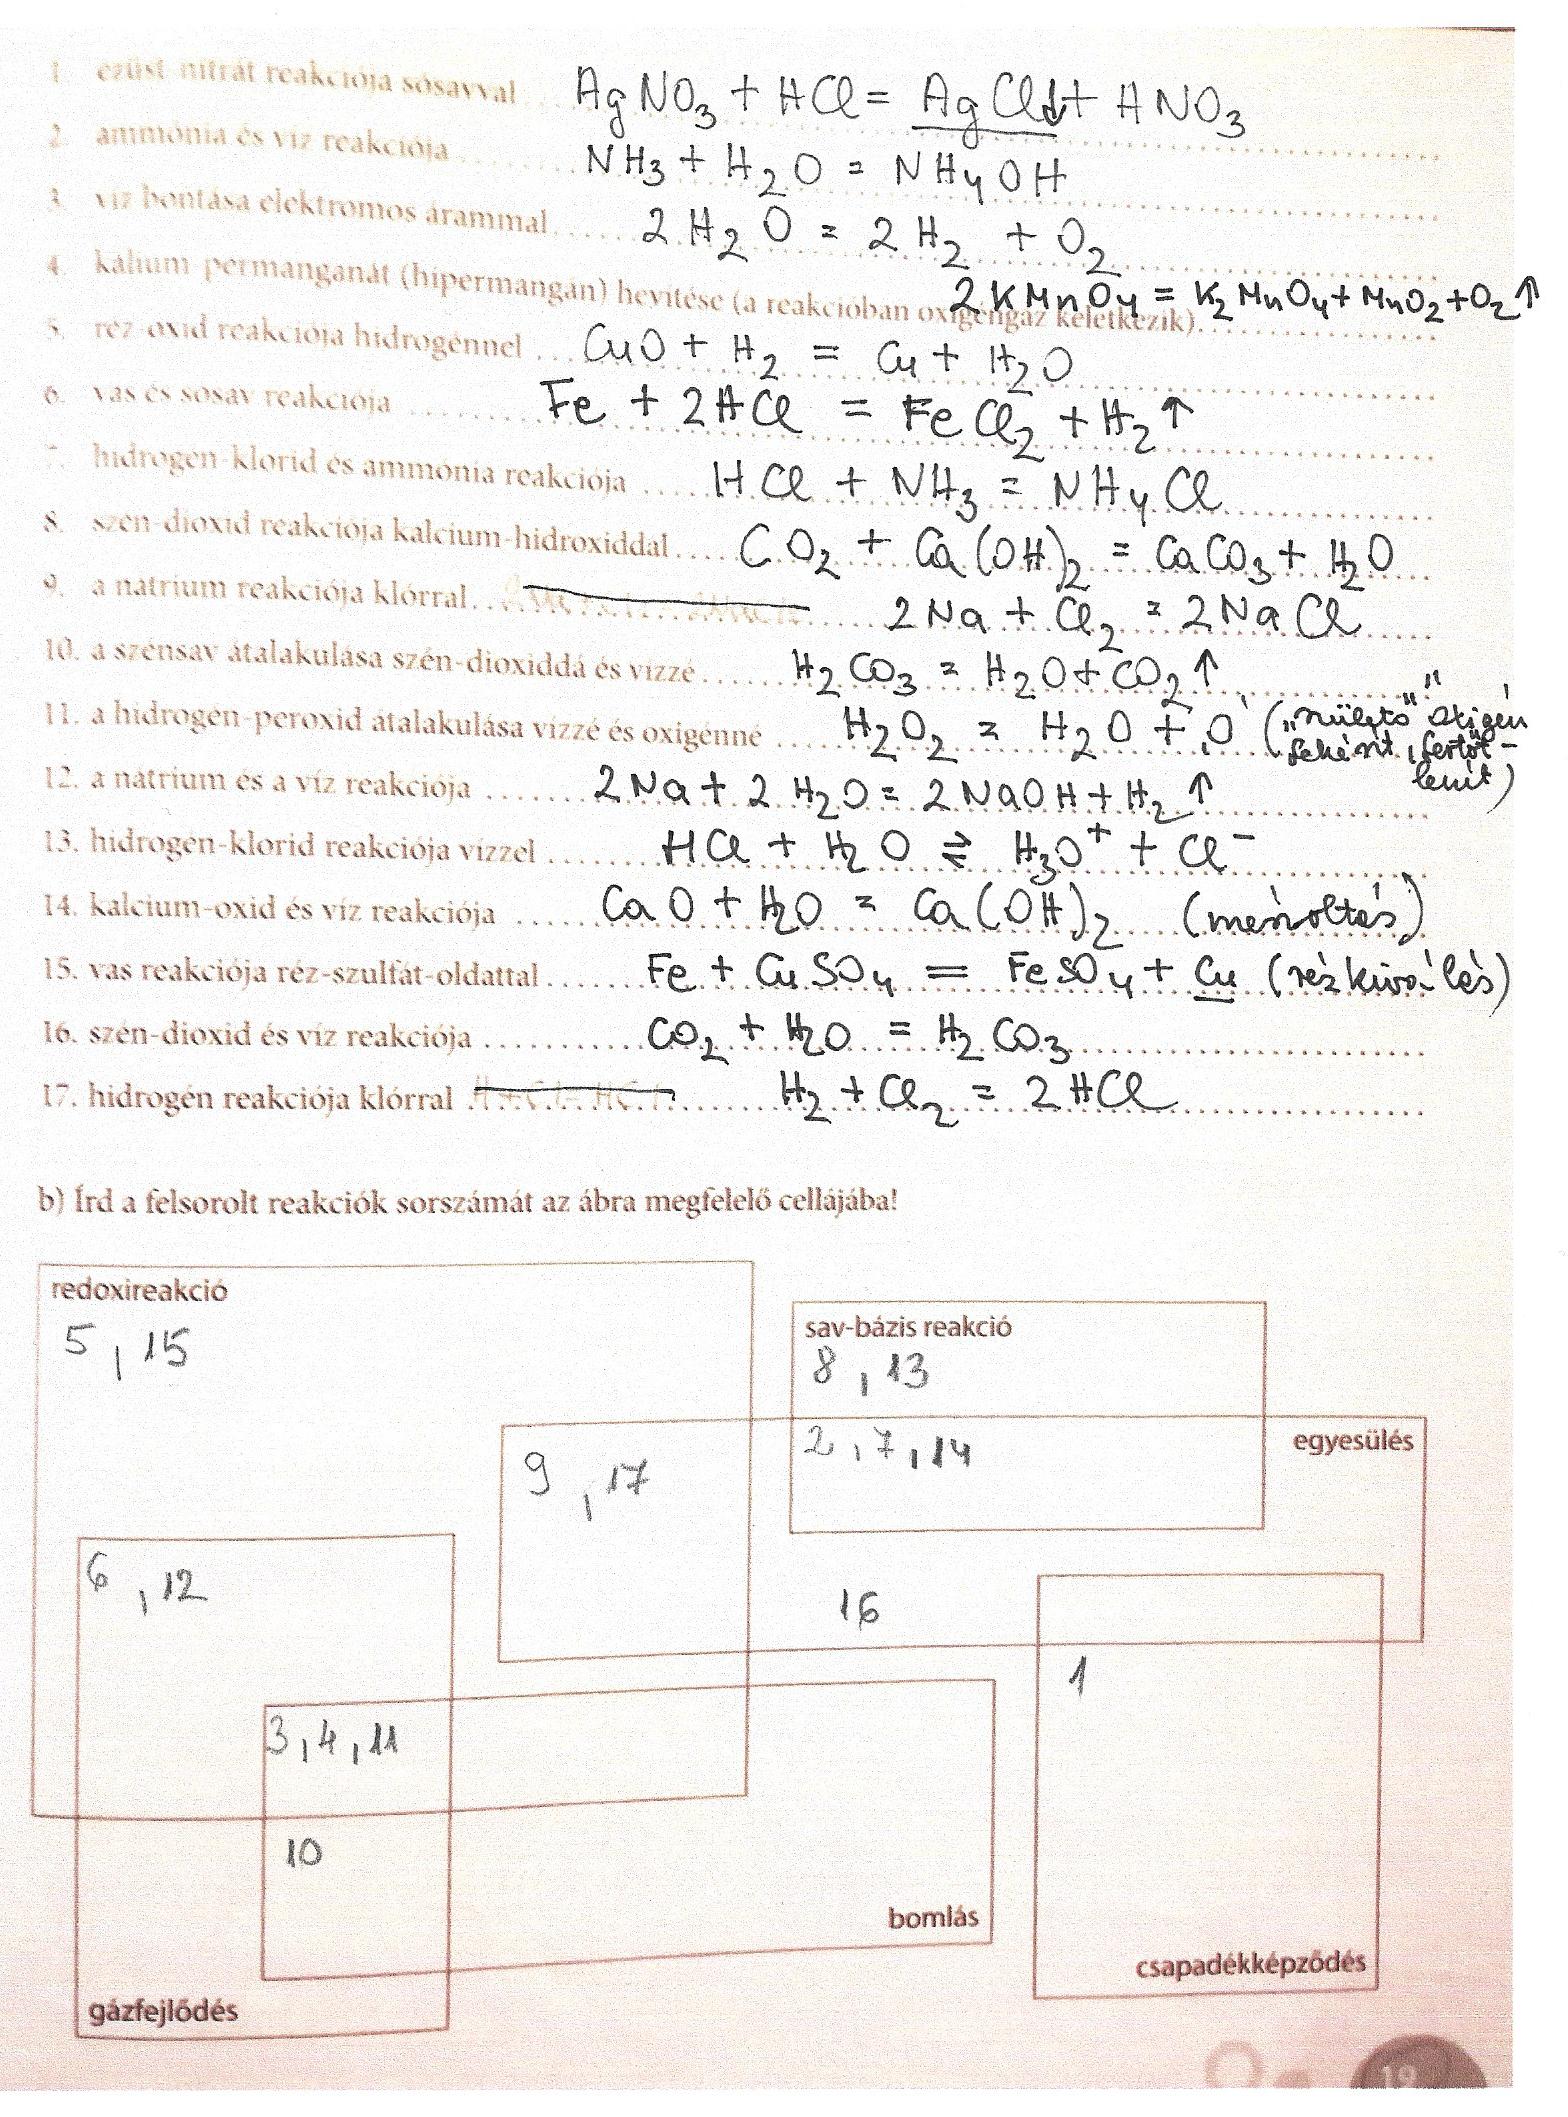 1. ezüst-nitrát reakciója sósavval ... AgNO₃ + HCl = AgCl↓ + HNO₃
2. ammónia és víz reakciója ... NH₃ + H₂O = NH₄OH
3. víz bontása elektromos árammal ... 2 H₂O = 2 H₂ + O₂
4. kálium-permanganát (hipermangán) hevítése (a reakcióban oxigéngáz keletkezik) ... 2 KMnO₄ = K₂MnO₄ + MnO₂ + O₂↑
5. réz-oxid reakciója hidrogénnel ... CuO + H₂ = Cu + H₂O
6. vas és sósav reakciója ... Fe + 2HCl = FeCl₂ + H₂↑
7. hidrogén-klorid és ammónia reakciója ... HCl + NH₃ = NH₄Cl
8. szén-dioxid reakciója kalcium-hidroxiddal ... CO₂ + Ca(OH)₂ = CaCO₃ + H₂O
9. a nátrium reakciója klórral ... 2Na + Cl₂ = 2NaCl
10. a szénsav átalakulása szén-dioxiddá és vízzé ... H₂CO₃ = H₂O + CO₂↑
11. a hidrogén-peroxid átalakulása vízzé és oxigénné ... H₂O₂ = H₂O + 'O' („születő” oxigén
fehérít, fertőt-
lenít)
12. a nátrium és a víz reakciója ... 2Na + 2 H₂O = 2 NaOH + H₂↑
13. hidrogén-klorid reakciója vízzel ... HCl + H₂O ⇌ H₃O⁺ + Cl⁻
14. kalcium-oxid és víz reakciója ... CaO + H₂O = Ca(OH)₂ (mészoltás)
15. vas reakciója réz-szulfát-oldattal ... Fe + CuSO₄ = FeSO₄ + Cu (rézkiválás)
16. szén-dioxid és víz reakciója ... CO₂ + H₂O = H₂CO₃
17. hidrogén reakciója klórral ... H₂ + Cl₂ = 2HCl
b) Írd a felsorolt reakciók sorszámát az ábra megfelelő cellájába!
redoxireakció
5, 15
sav-bázis reakció
8, 13
2, 7, 14
egyesülés
9, 17
6, 12
16
1
3, 4, 11
10
bomlás
csapadékképződés
gázfejlődés
19